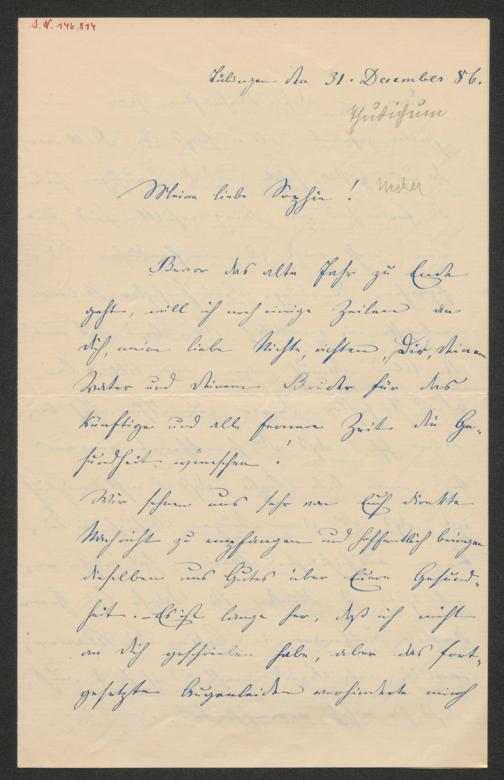 I. N. 146,814
Tübingen den 31. December 86.
Thudichum
Meine liebe Sophie!
Bevor das alte Jahr zu Ende
geht, will ich noch einige Zeilen an
Dich, meine liebe Nichte, richten, Dir, Deinem
Vater und Deinem Bruder für das
künftige und alle fernere Zeit die Ge-
sundheit wünschen!
Wir sehnen uns sehr von Euch direkte
Nachricht zu empfangen und hoffentlich bringen
dieselben uns Gutes über Euere Gesund-
heit. – Es ist lange her, daß ich nicht
an Dich geschrieben habe, aber das fort-
gesetzte Augenleiden verhinderte mich